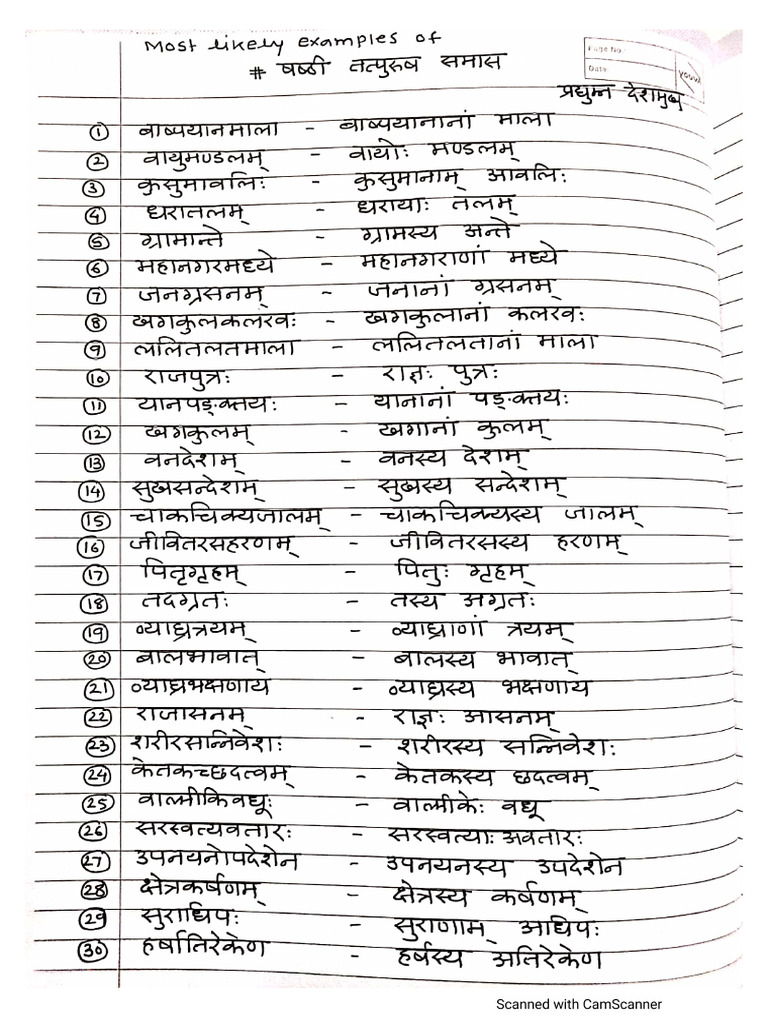 Most likely examples of
# षष्ठी तत्पुरुष समास
Page No.:
Date:
YOUVA
प्रद्युम्न देशमुख
① बाष्पयानमाला - बाष्पयानानां माला
② वायुमण्डलम् - वायोः मण्डलम्
③ कुसुमावलिः - कुसुमानाम् आवलिः
④ धरातलम् - धरायाः तलम्
⑤ ग्रामान्ते - ग्रामस्य अन्ते
⑥ महानगरमध्ये - महानगराणां मध्ये
⑦ जनग्रसनम् - जनानां ग्रसनम्
⑧ खगकुलकलरवः - खगकुलानां कलरवः
⑨ ललितलतमाला - ललितलतानां माला
⑩ राजपुत्रः - राज्ञः पुत्रः
⑪ यानपङ्क्तयः - यानानां पङ्क्तयः
⑫ खगकुलम् - खगानां कुलम्
⑬ वनदेशम् - वनस्य देशम्
⑭ सुखसन्देशम् - सुखस्य सन्देशम्
⑮ चाकचिक्यजालम् - चाकचिक्यस्य जालम्
⑯ जीवितरसहरणम् - जीवितरसस्य हरणम्
⑰ पितृगृहम् - पितुः गृहम्
⑱ तदग्रतः - तस्य अग्रतः
⑲ व्याघ्रत्रयम् - व्याघ्राणां त्रयम्
⑳ बालभावात् - बालस्य भावात्
㉑ व्याघ्रभक्षणाय - व्याघ्रस्य भक्षणाय
㉒ राजासनम् - राज्ञः आसनम्
㉓ शरीरसन्निवेशः - शरीरस्य सन्निवेशः
㉔ केतकच्छदत्वम् - केतकस्य छदत्वम्
㉕ वाल्मीकिवधूः - वाल्मीकेः वधू
㉖ सरस्वत्यवतारः - सरस्वत्याः अवतारः
㉗ उपनयनोपदेशेन - उपनयनस्य उपदेशेन
㉘ क्षेत्रकर्षणम् - क्षेत्रस्य कर्षणम्
㉙ सुराधिपः - सुराणाम् आधिपः
㉚ हर्षातिरेकेण - हर्षस्य अतिरेकेण
Scanned with CamScanner